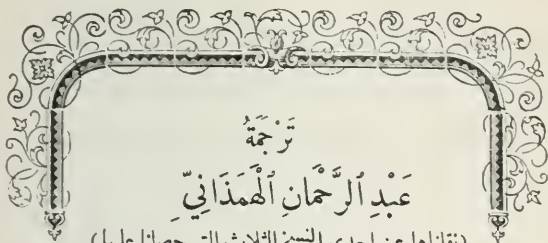 تَرْجَمَةُ
عَبْدِ ٱلرَّحْمَانِ ٱلْهَمَذَانِيِّ
(نقلناها عن احدى النسخ الثلاث التي حصلنا عليها)